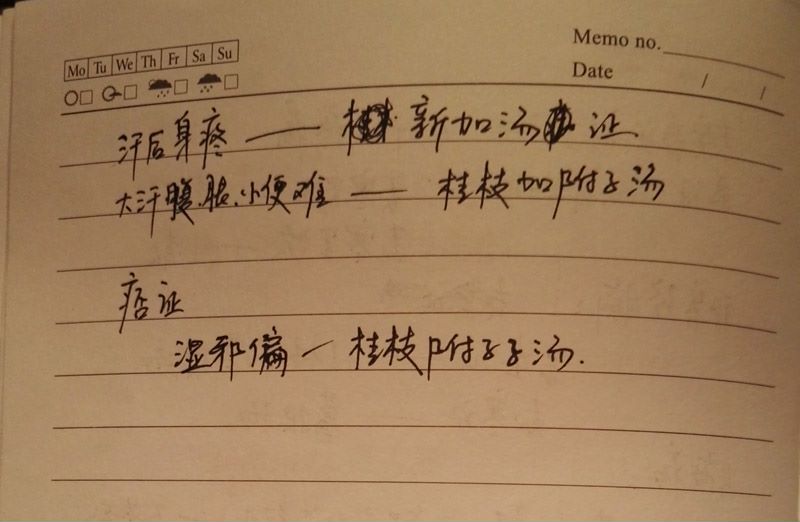 Memo no.
Mo Tu We Th Fr Sa Su
Date / /
汗后身疼 — 新加汤 证
大汗腹胀、小便难 — 桂枝加附子汤
痞证
湿邪偏 — 桂枝附子汤.